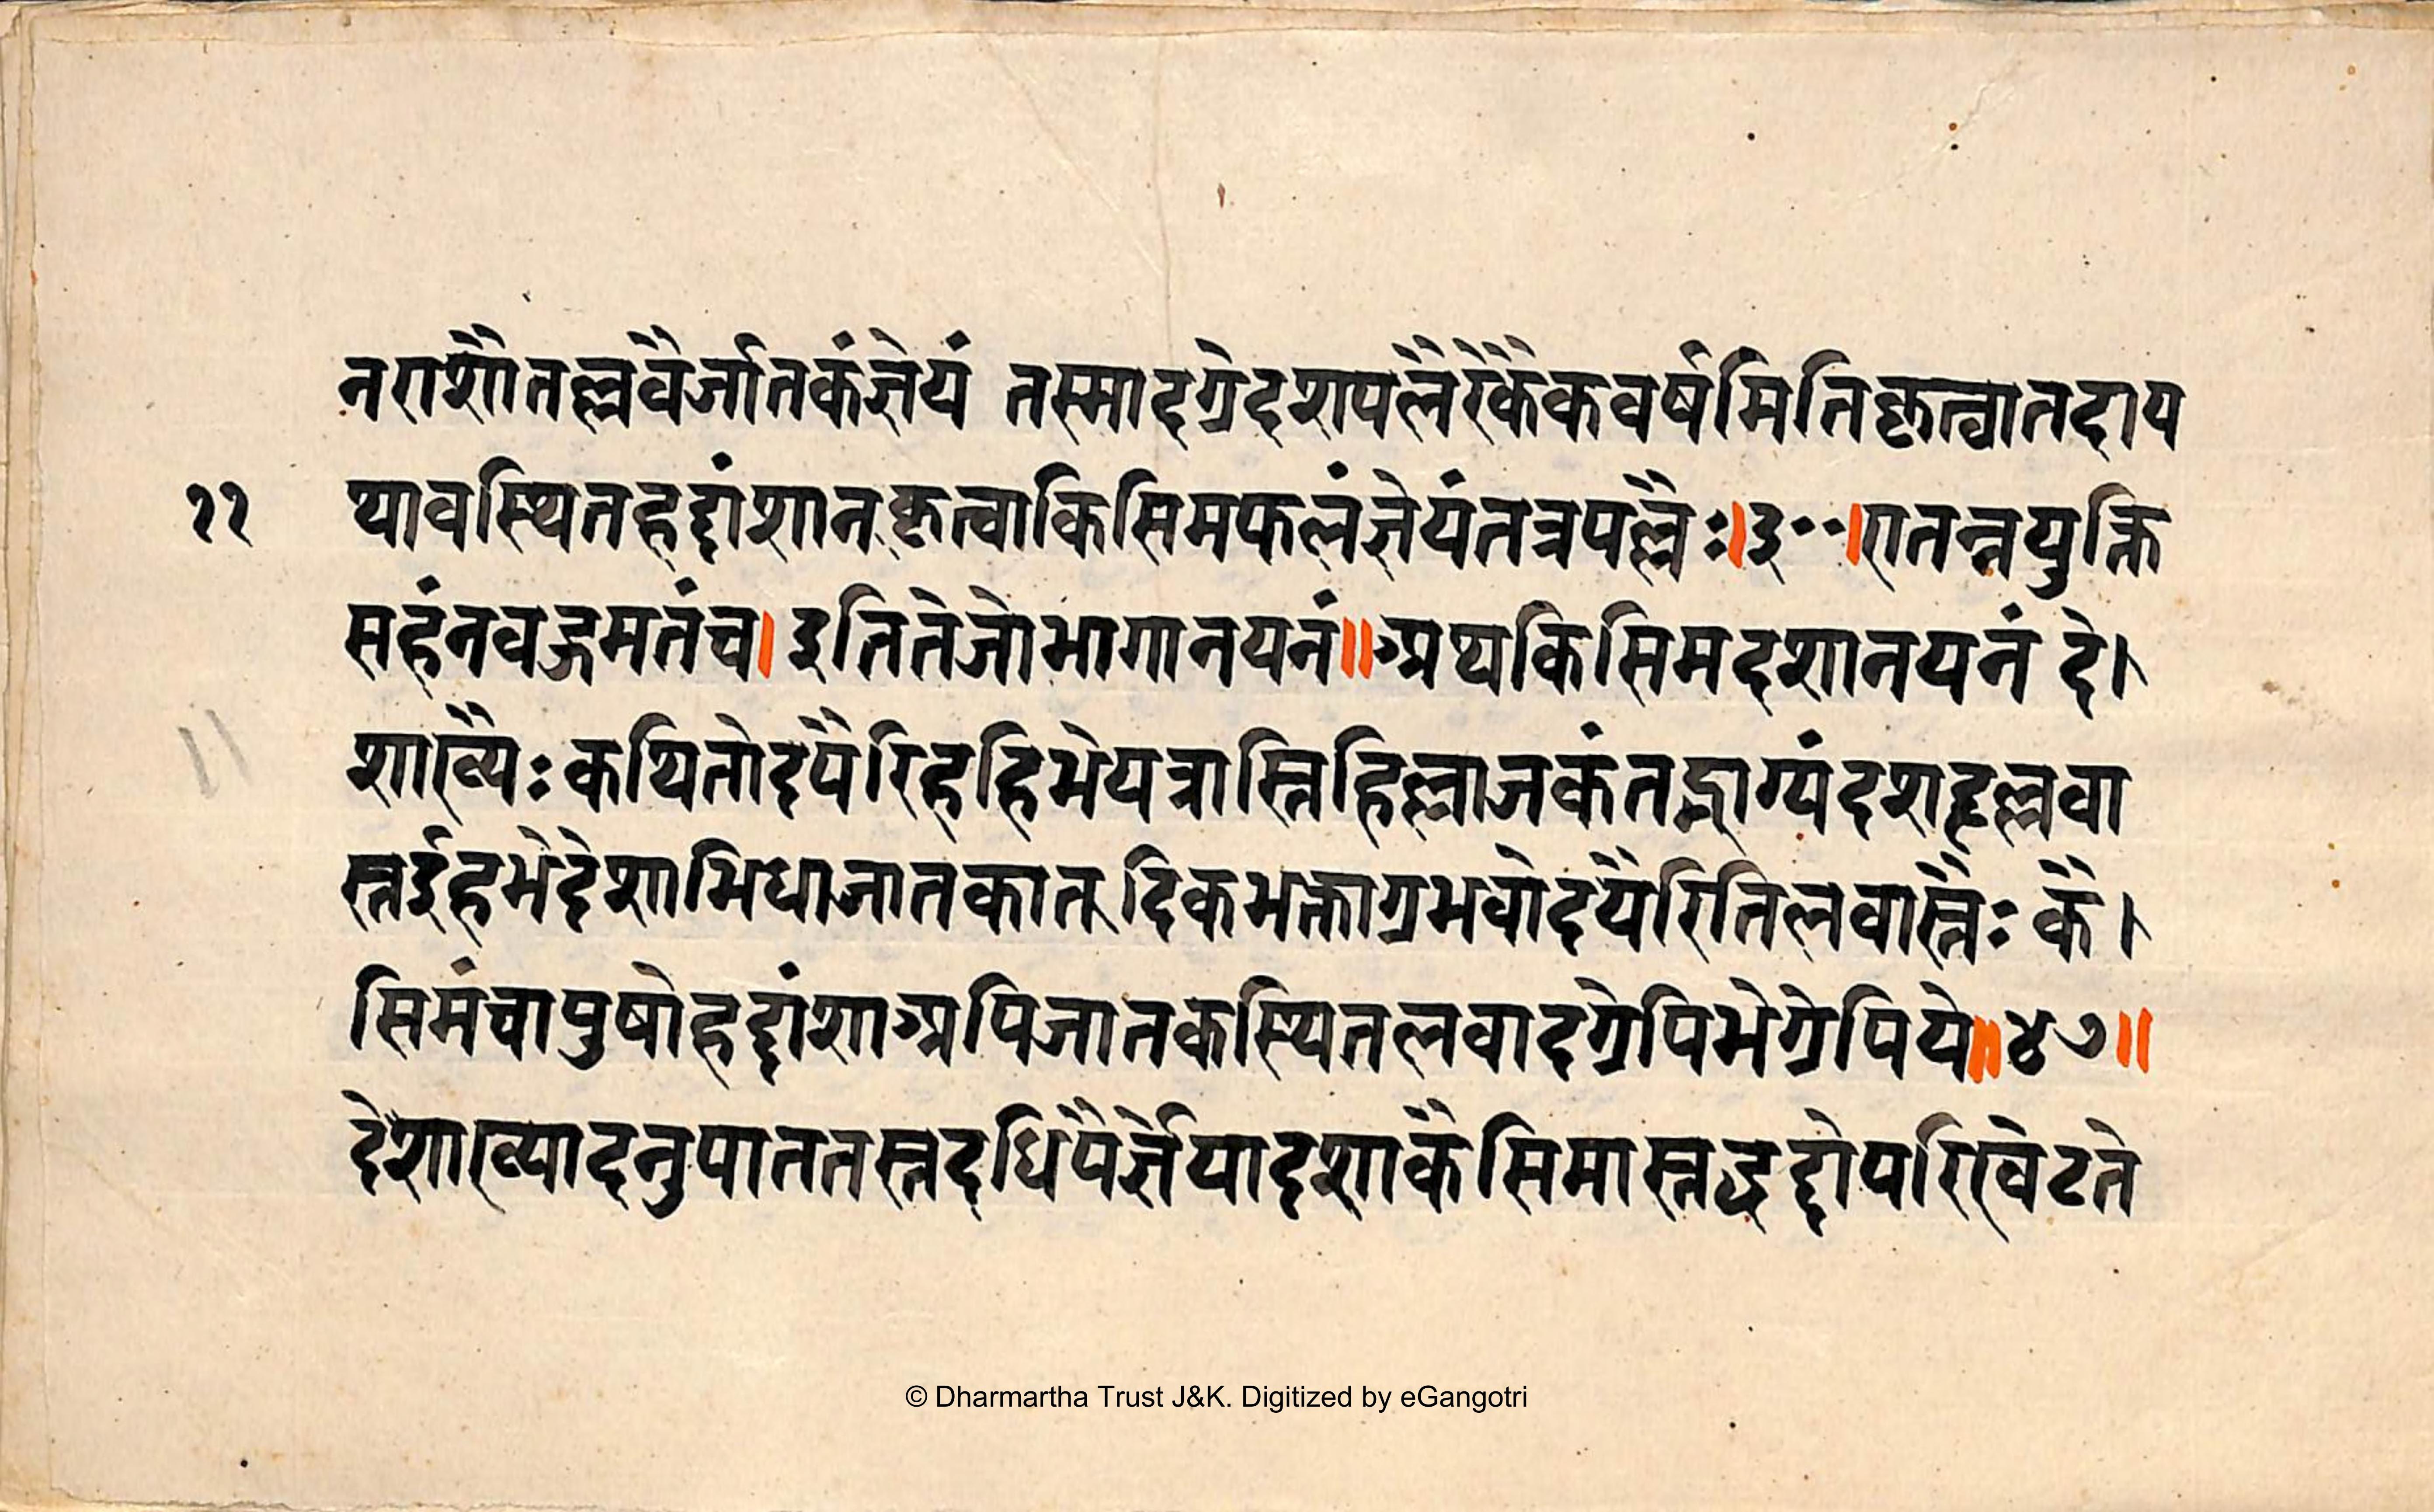 नराशौतल्लवैर्जातकंज्ञेयं तस्मादग्रेदशपलैरेकैकवर्षमितिकृत्वातदाय
११ थावस्थितहद्दांशान्कृत्वाकिसिमफलंज्ञेयंतत्रपल्लैः।३००।एतन्नयुक्ति
सहंनवह्रमतंच। इतितेजोभागानयनं॥अथकिसिमदशानयनं दे।
शाख्यैः कथितोदयैरिहहिभेयत्रास्तिहिल्लाजकंतद्भाग्यंदशहृल्लवा
स्तइहभेदेशाभिधाजातकात् दिकभक्ताग्रभवोदयैरितिलवास्तैः कै।
सिमंचापुषोहद्दांशाअपिजातकस्थितलवादग्रेपिभेग्रेपिये॥४७॥
देशाख्यादनुपाततस्तदधिपैर्ज्ञेयादशाकैसिमास्तद्धद्दोपरिखेटते
© Dharmartha Trust J&K. Digitized by eGangotri